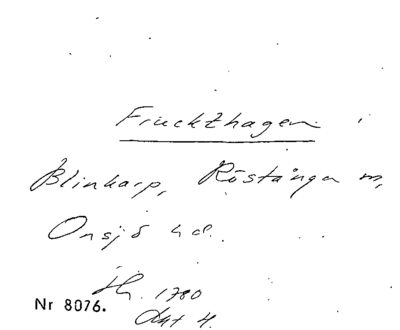 Fruckthagen
Blinkarp, Röstånga sn,
Onsjö hd.
1780
Nr 8076.
Akt 4.